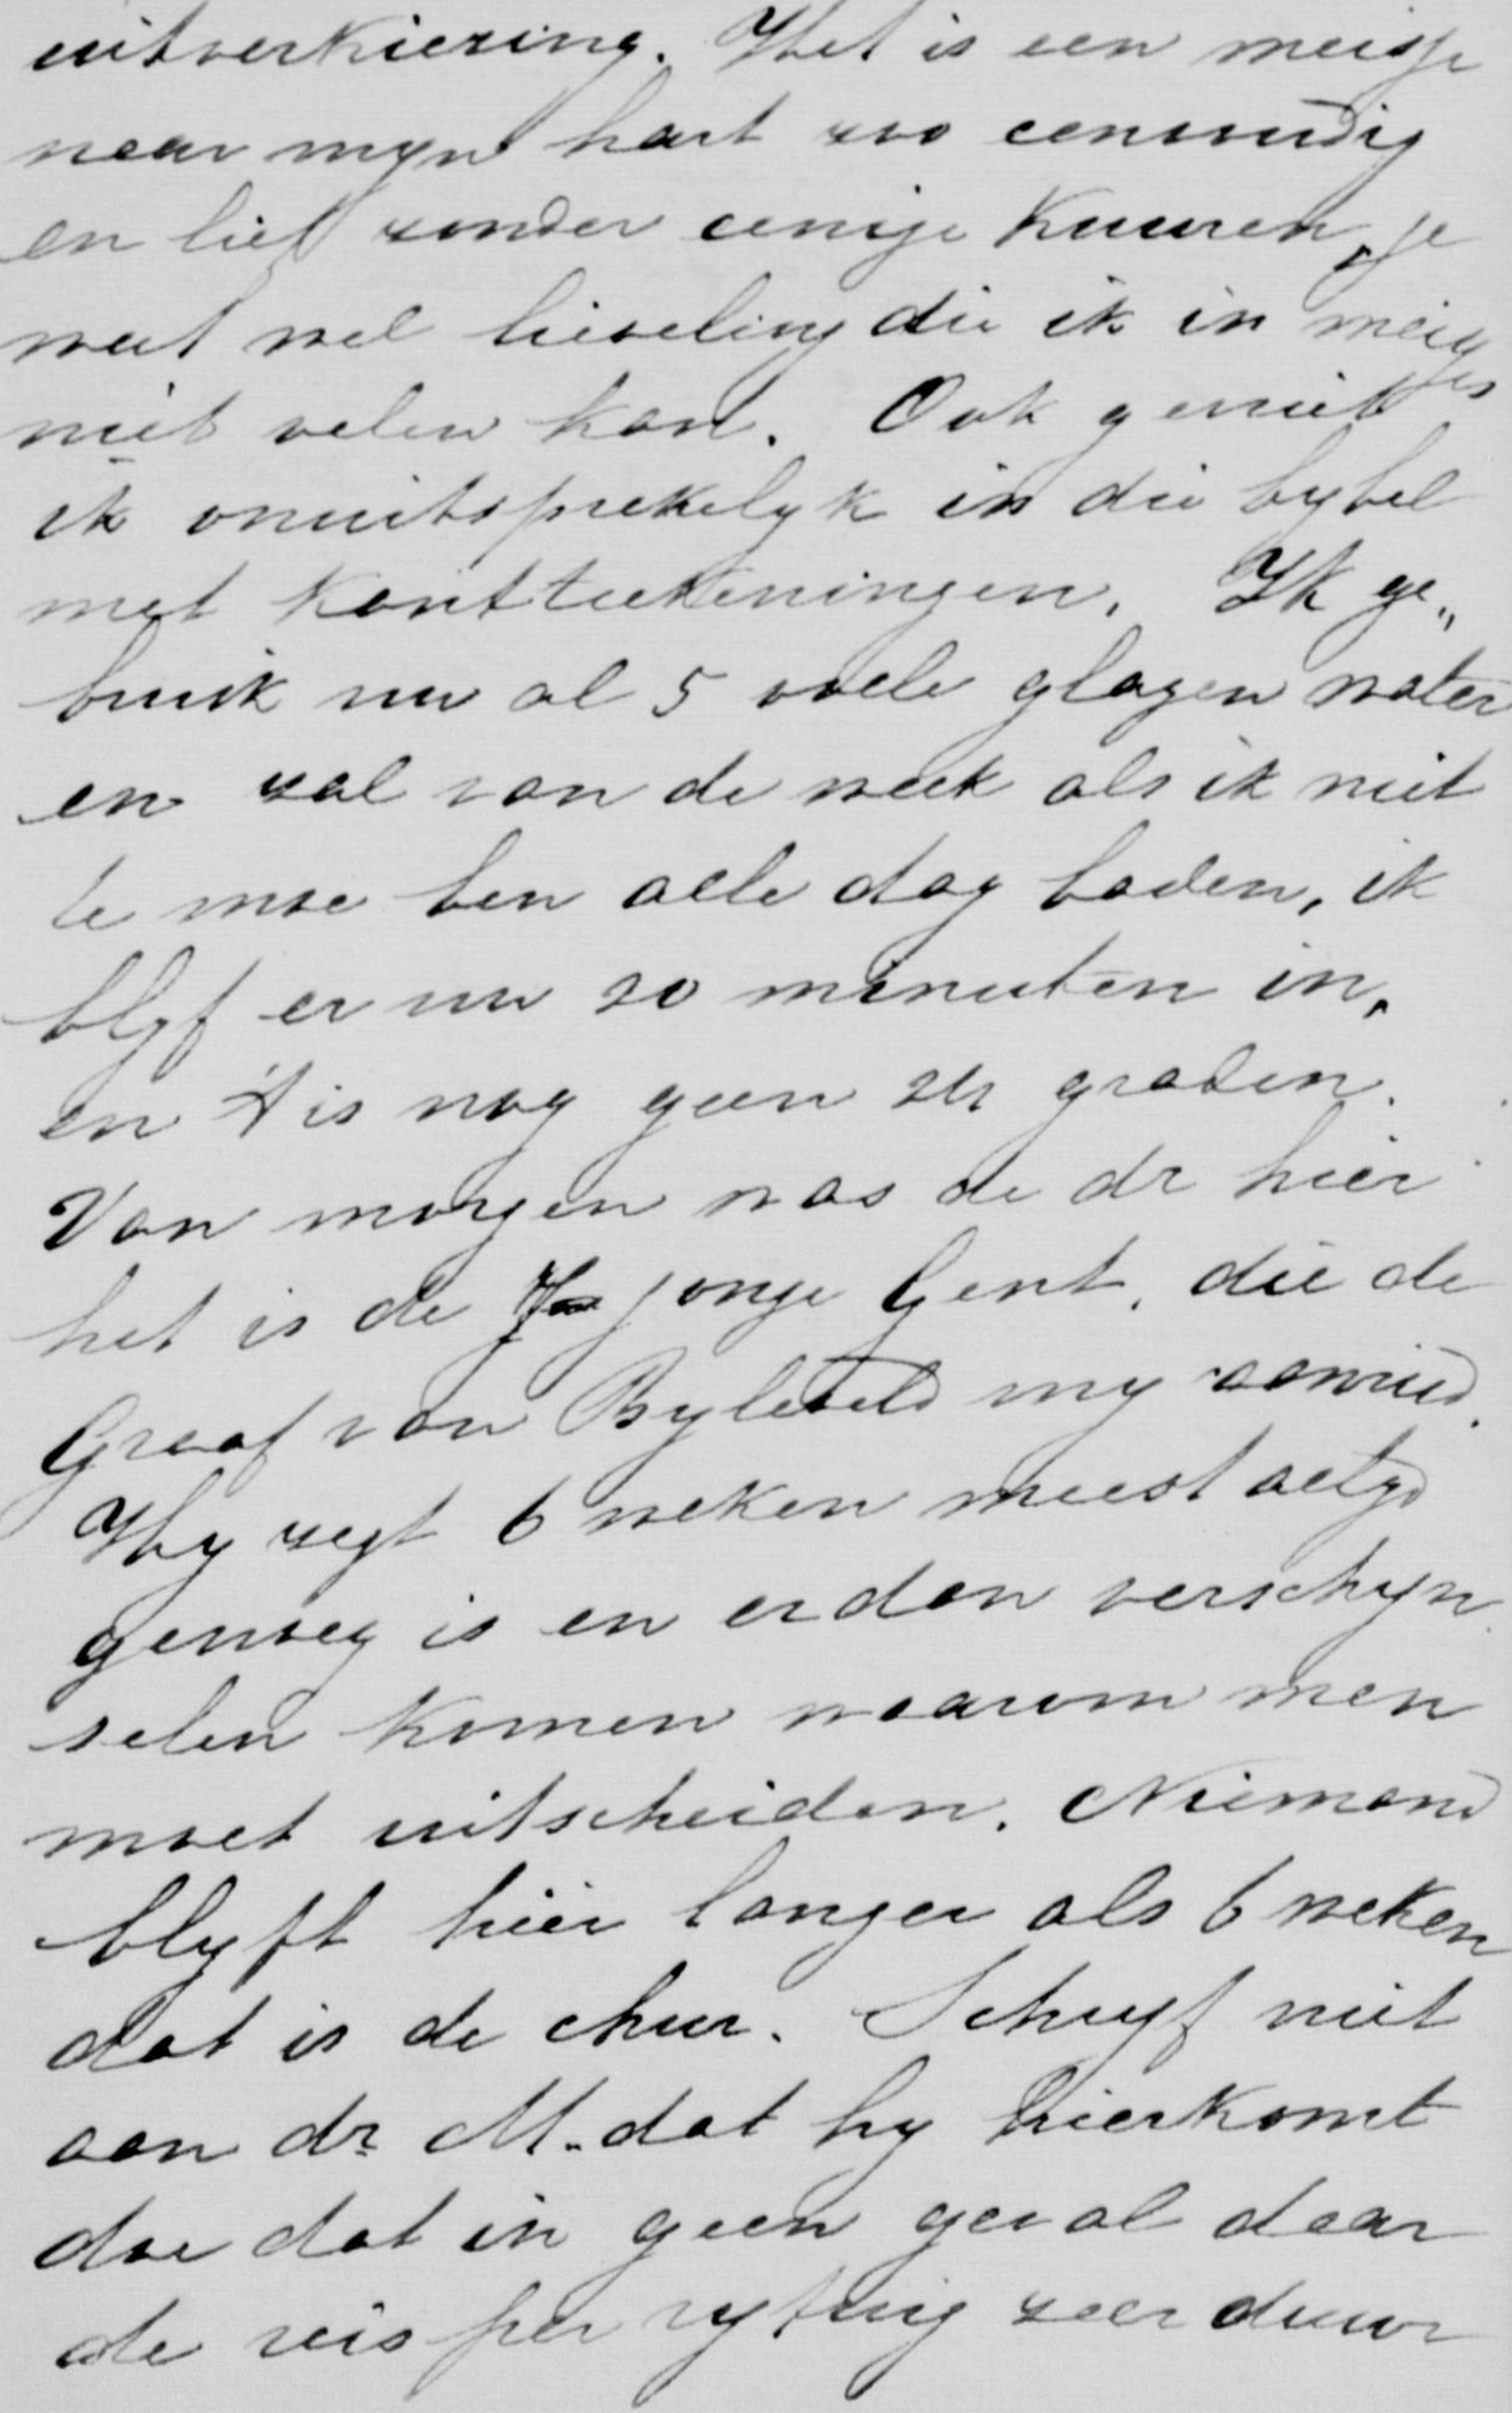 uitverkiezing. Het is een meisje
naar myn hart zoo eenvoudig
en lief zonder eenige kuuren, je
weet wel lieveling die ik in meisjes
niet velen kan. Ook geniet
ik onuitsprekelyk in die bybel
met kantteekeningen. Ik ge„
bruik nu al 5 volle glazen water
en zal van de week als ik niet
te moe ben alle dag baden, ik
blyf er nu 20 minuten in,
en 't is nog geen graden.
Van morgen was de dr hier
het is de jonge Gent, die de
Graaf van Byleveld my aanried.
Hy zegt 6 weken meest altyd
genoeg is en er dan verschyn
selen komen waarom men
moet uitscheiden. Niemand
blyft hier langer als 6 weken
dat is de chur. Schryf niet
aan dr M. dat hy hier komt
doe dat in geen geval daar
de reis per rytuig zeer duur